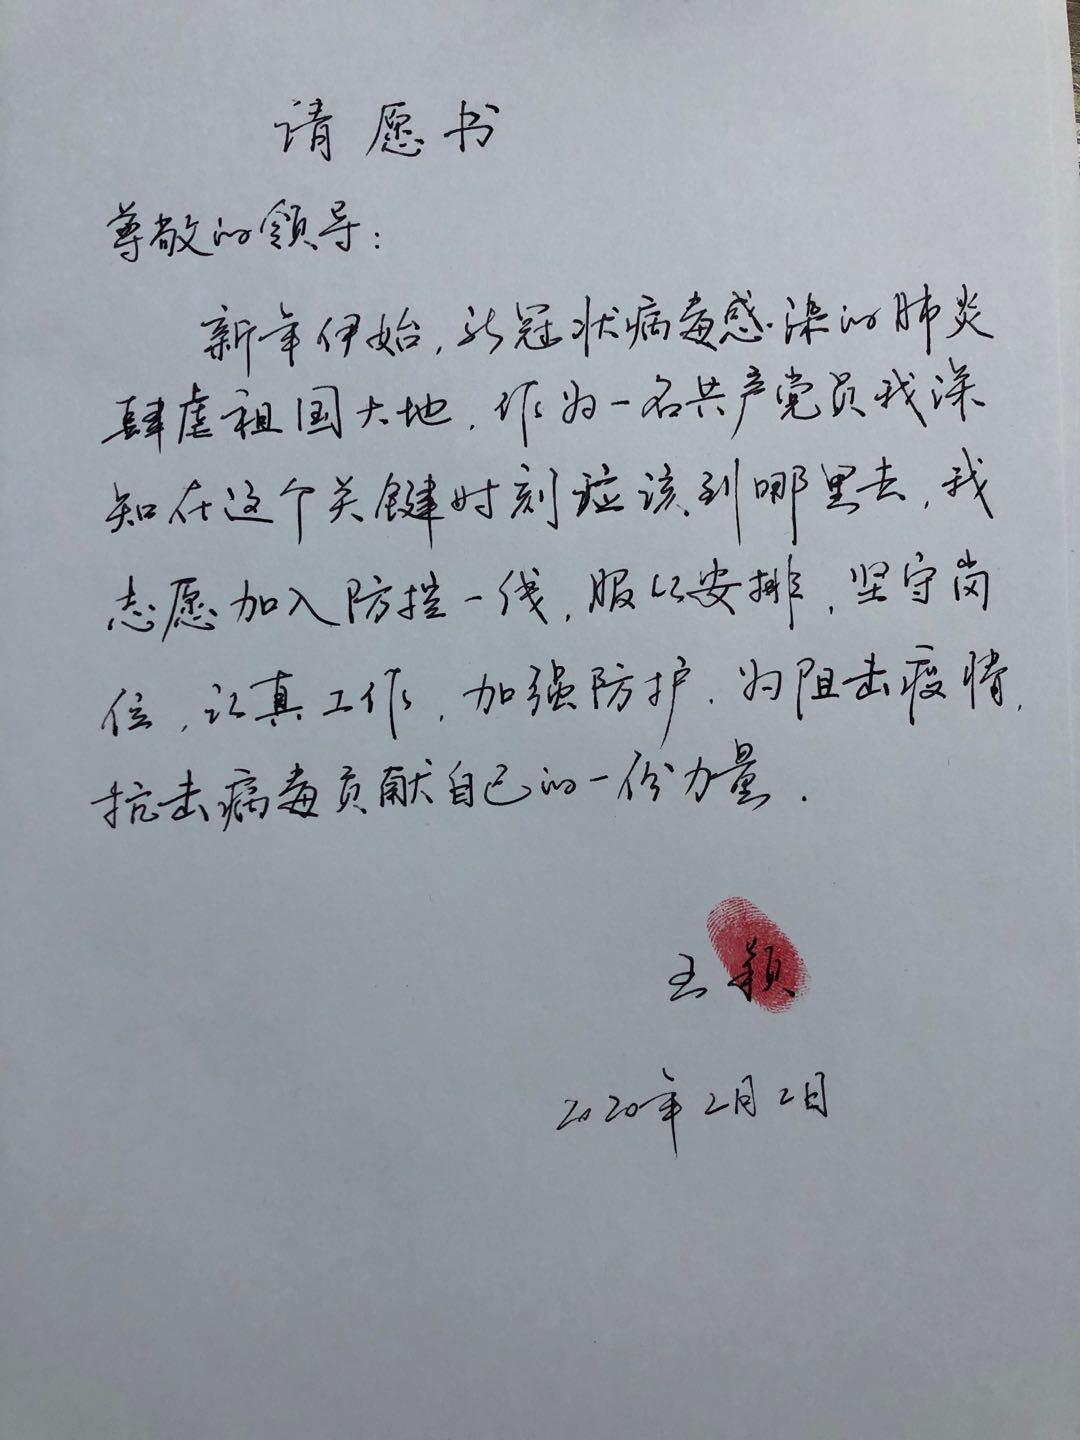 请愿书
尊敬的领导：
新年伊始，新冠状病毒感染的肺炎
肆虐祖国大地，作为一名共产党员我深
知在这个关键时刻应该到哪里去，我
志愿加入防控一线，服从安排，坚守岗
位，认真工作，加强防护，为阻击疫情，
抗击病毒贡献自己的一份力量．
王颖
2020年2月2日